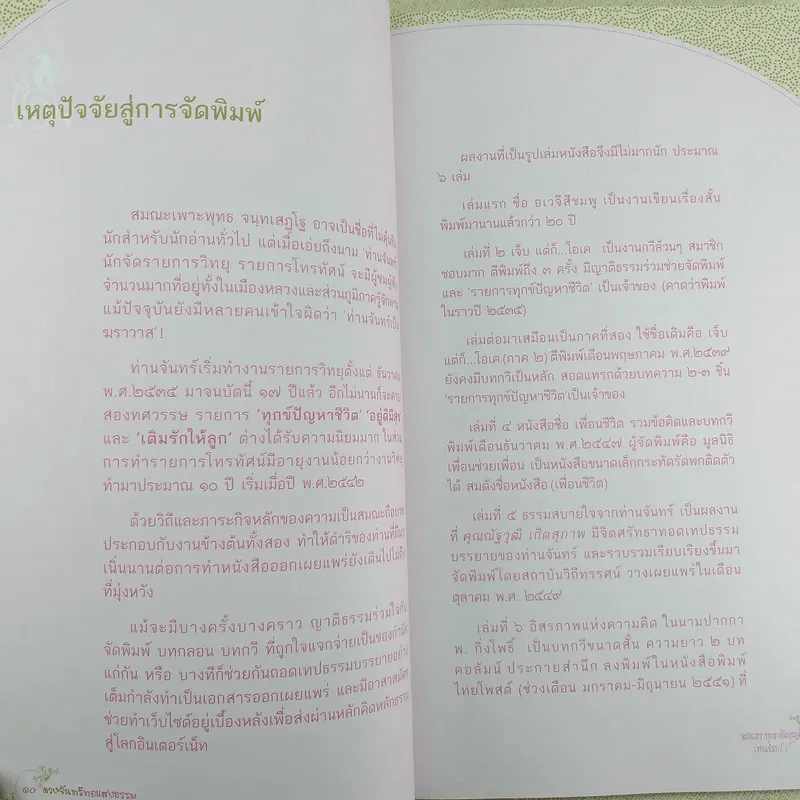 เหตุปัจจัยสู่การจัดพิมพ์
สมณะเพาะพุทธ จนฺทเสฏฺโฐ อาจเป็นชื่อที่ไม่คุ้นชิน
นักสำหรับนักอ่านทั่วไป แต่เมื่อเอ่ยถึงนาม 'ท่านจันทร์'
นักจัดรายการวิทยุ รายการโทรทัศน์ จะมีผู้ชมผู้ฟัง
จำนวนมากที่อยู่ทั้งในเมืองหลวงและส่วนภูมิภาครู้จัก
แม้ปัจจุบันยังมีหลายคนเข้าใจผิดว่า 'ท่านจันทร์เป็น
ฆราวาส'!
ท่านจันทร์เริ่มทำงานรายการวิทยุตั้งแต่ ธันวาคม
พ.ศ.๒๕๓๕ มาจนบัดนี้ ๑๗ ปีแล้ว อีกไม่นานก็จะครบ
สองทศวรรษ รายการ 'ทุกข์ปัญหาชีวิต' 'อยู่ดีมีสุข'
และ 'เติมรักให้ลูก' ต่างได้รับความนิยมมาก ในส่วน
การทำรายการโทรทัศน์มีอายุงานน้อยกว่างานวิทยุ
ทำมาประมาณ ๑๐ ปี เริ่มเมื่อปี พ.ศ.๒๕๔๒
ด้วยวิถีและภาระกิจหลักของความเป็นสมณะถือบวช
ประกอบกับงานข้างต้นทั้งสอง ทำให้ดำริของท่านที่มีมา
เนิ่นนานต่อการทำหนังสือออกเผยแพร่ยังเดินไปไม่ถึง
ที่มุ่งหวัง
แม้จะมีบางครั้งบางคราว ญาติธรรมร่วมใจกัน
จัดพิมพ์ บทกลอน บทกวี ที่ถูกใจแจกจ่ายเป็นของกำนัล
แก่กัน หรือ บางทีก็ช่วยกันถอดเทปธรรมบรรยายอย่าง
เต็มกำลังทำเป็นเอกสารออกเผยแพร่ และมีอาสาสมัคร
ช่วยทำเว็บไซด์อยู่เบื้องหลังเพื่อส่งผ่านหลักคิดหลักธรรม
สู่โลกอินเตอร์เน็ท
๑๐ ดวงจันทร์ทอแสงธรรม
ผลงานที่เป็นรูปเล่มหนังสือจึงมีไม่มากนัก ประมาณ
๖ เล่ม
เล่มแรก ชื่อ อเวจีสีชมพู เป็นงานเขียนเรื่องสั้น
พิมพ์มานานแล้วกว่า ๒๐ ปี
เล่มที่ ๒ เจ็บ แต่ก็...โอเค เป็นงานกวีล้วนๆ สมาชิก
ชอบมาก ตีพิมพ์ถึง ๓ ครั้ง มีญาติธรรมร่วมช่วยจัดพิมพ์
และ 'รายการทุกข์ปัญหาชีวิต' เป็นเจ้าของ (คาดว่าพิมพ์
ในราวปี ๒๕๓๕)
เล่มต่อมาเสมือนเป็นภาคที่สอง ใช้ชื่อเดิมคือ เจ็บ
แต่ก็...โอเค (ภาค ๒) ตีพิมพ์เดือนพฤษภาคม พ.ศ.๒๕๓๙
ยังคงมีบทกวีเป็นหลัก สอดแทรกด้วยบทความ ๒-๓ ชิ้น
'รายการทุกข์ปัญหาชีวิต'เป็นเจ้าของ
เล่มที่ ๔ หนังสือชื่อ เพื่อนชีวิต รวมข้อคิดและบทกวี
พิมพ์เดือนธันวาคม พ.ศ.๒๕๔๗ ผู้จัดพิมพ์คือ มูลนิธิ
เพื่อนช่วยเพื่อน เป็นหนังสือขนาดเล็กกระทัดรัดพกติดตัว
ได้ สมดังชื่อหนังสือ (เพื่อนชีวิต)
เล่มที่ ๕ ธรรมสบายใจจากท่านจันทร์ เป็นผลงาน
ที่ คุณณัฐวุฒิ เกิดสุภาพ มีจิตศรัทธาทอดเทปธรรม
บรรยายของท่านจันทร์ และรวบรวมเรียบเรียงขึ้นมา
จัดพิมพ์โดยสถาบันวิถีทรรศน์ วางเผยแพร่ในเดือน
ตุลาคม พ.ศ. ๒๕๔๙
เล่มที่ ๖ อิสรภาพแห่งความคิด ในนามปากกา
พ. กิ่งโพธิ์ เป็นบทกวีขนาดสั้น ความยาว ๒ บท
คอลัมน์ ประกายสำนึก ลงพิมพ์ในหนังสือพิมพ์
ไทยโพสต์ (ช่วงเดือน มกราคม-มิถุนายน ๒๕๕๑) ที่